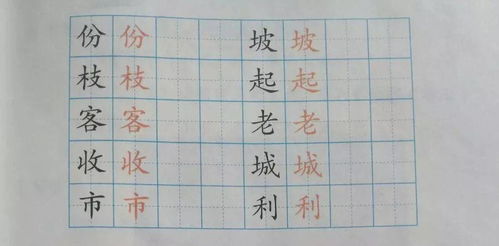 份份 坡坡
枝枝 起起
客客 老老
收收 城城
市市 利利